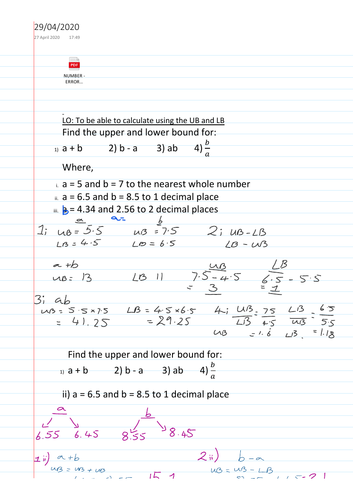 29/04/2020
27 April 2020 17:49
PDF
NUMBER -
ERROR...
LO: To be able to calculate using the UB and LB
Find the upper and lower bound for:
1) a + b 2) b - a 3) ab 4) b/a
Where,
i. a = 5 and b = 7 to the nearest whole number
ii. a = 6.5 and b = 8.5 to 1 decimal place
iii. b = 4.34 and 2.56 to 2 decimal places
a a= b
1i UB = 5.5 UB = 7.5 2i UB - LB
LB = 4.5 LB = 6.5 LB - UB
a + b UB LB
UB = 13 LB 11 7.5 - 4.5 6.5 - 5.5
= 3 = 1
3i ab
UB = 5.5 x 7.5 LB = 4.5 x 6.5 4i UB/LB = 7.5/4.5 LB/UB = 6.5/5.5
= 41.25 = 29.25 UB = 1.6 LB = 1.18
Find the upper and lower bound for:
1) a + b 2) b - a 3) ab 4) b/a
ii) a = 6.5 and b = 8.5 to 1 decimal place
a b
6.55 6.45 8.55 8.45
1ii) a + b 2ii) b - a
UB = UB + UB UB = UB - LB